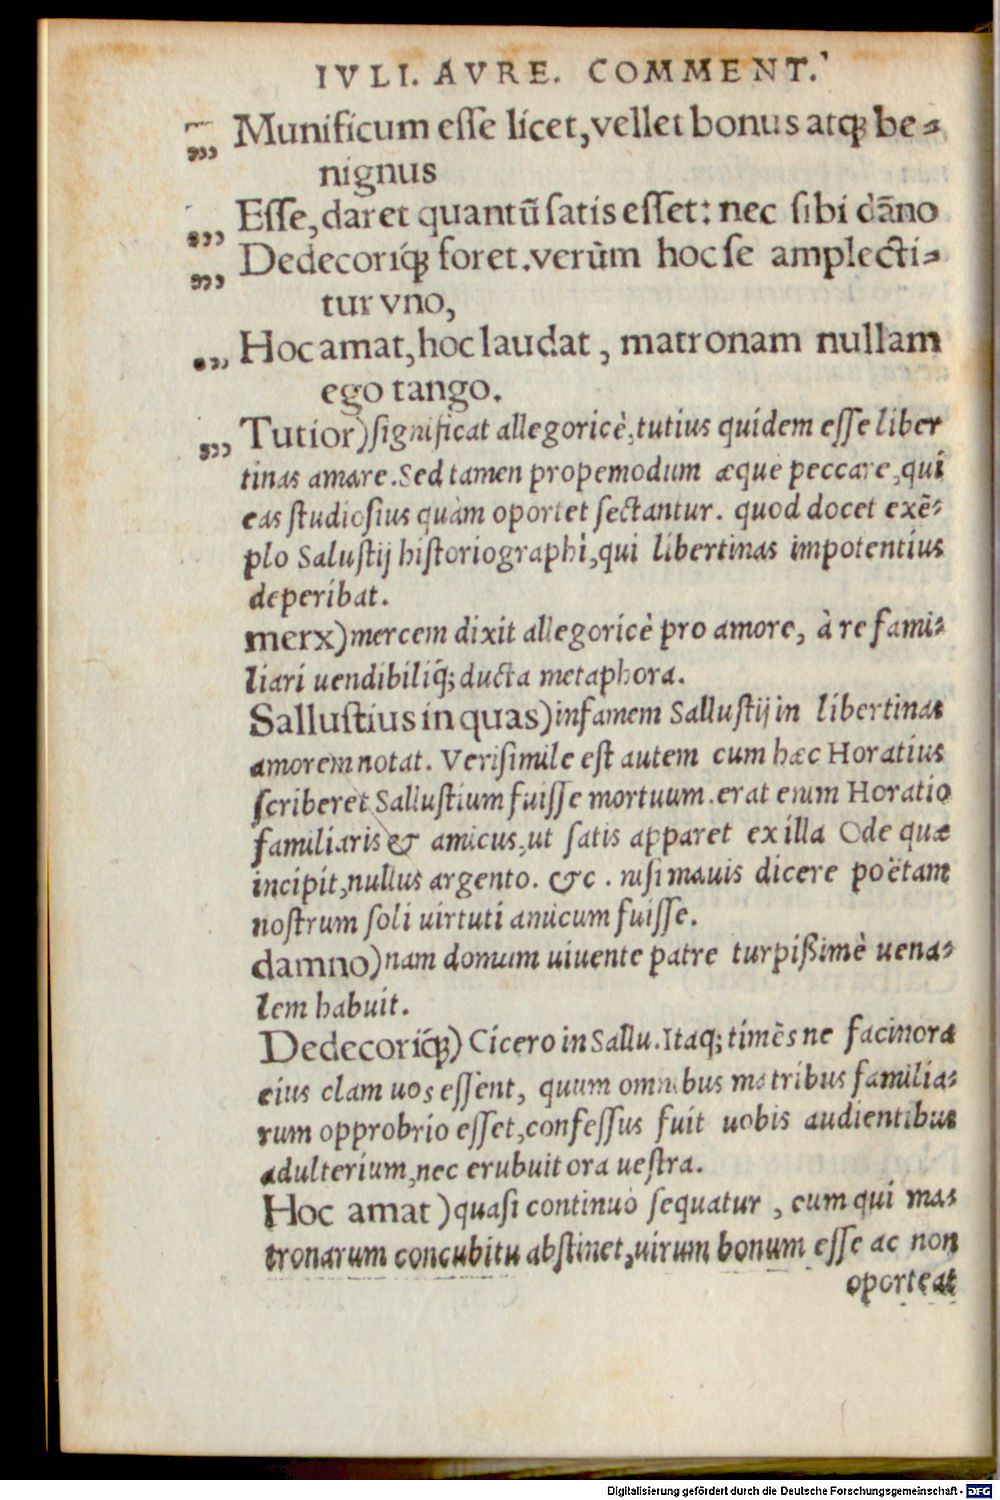 IVLI. AVRE. COMMENT.
„ Munificum esse licet, vellet bonus atq; be-
nignus
„ Esse, daret quantũ satis esset: nec sibi dãno
„ Dedecoriq́; foret. verùm hoc se amplecti-
tur vno,
„ Hoc amat, hoc laudat, matronam nullam
ego tango.
„ Tutior) significat allegoricè, tutius quidem esse liber
tinas amare. Sed tamen propemodum æque peccare, qui
eas studiosius quàm oportet sectantur. quod docet exẽ-
plo Salustij historiographi, qui libertinas impotentius
deperibat.
merx) mercem dixit allegoricè pro amore, à re fami-
liari uendibiliq́; ducta metaphora.
Sallustius in quas) infamem Sallustij in libertinas
amorem notat. Verisimile est autem cum hæc Horatius
scriberet Sallustium fuisse mortuum. erat enim Horatio
familiaris & amicus, ut satis apparet ex illa Ode quæ
incipit, nullus argento. &c. nisi mauis dicere poëtam
nostrum soli uirtuti amicum fuisse.
damno) nam domum uiuente patre turpißimè uena-
lem habuit.
Dedecoriq́;) Cicero in Sallu. Itaq; timẽs ne facinora
eius clam uos essent, quum omnibus matribus familia-
rum opprobrio esset, confessus fuit uobis audientibus
adulterium, nec erubuit ora uestra.
Hoc amat) quasi continuo sequatur, eum qui ma-
tronarum concubitu abstinet, uirum bonum esse ac non
oporteat
Digitalisierung gefördert durch die Deutsche Forschungsgemeinschaft - DFG